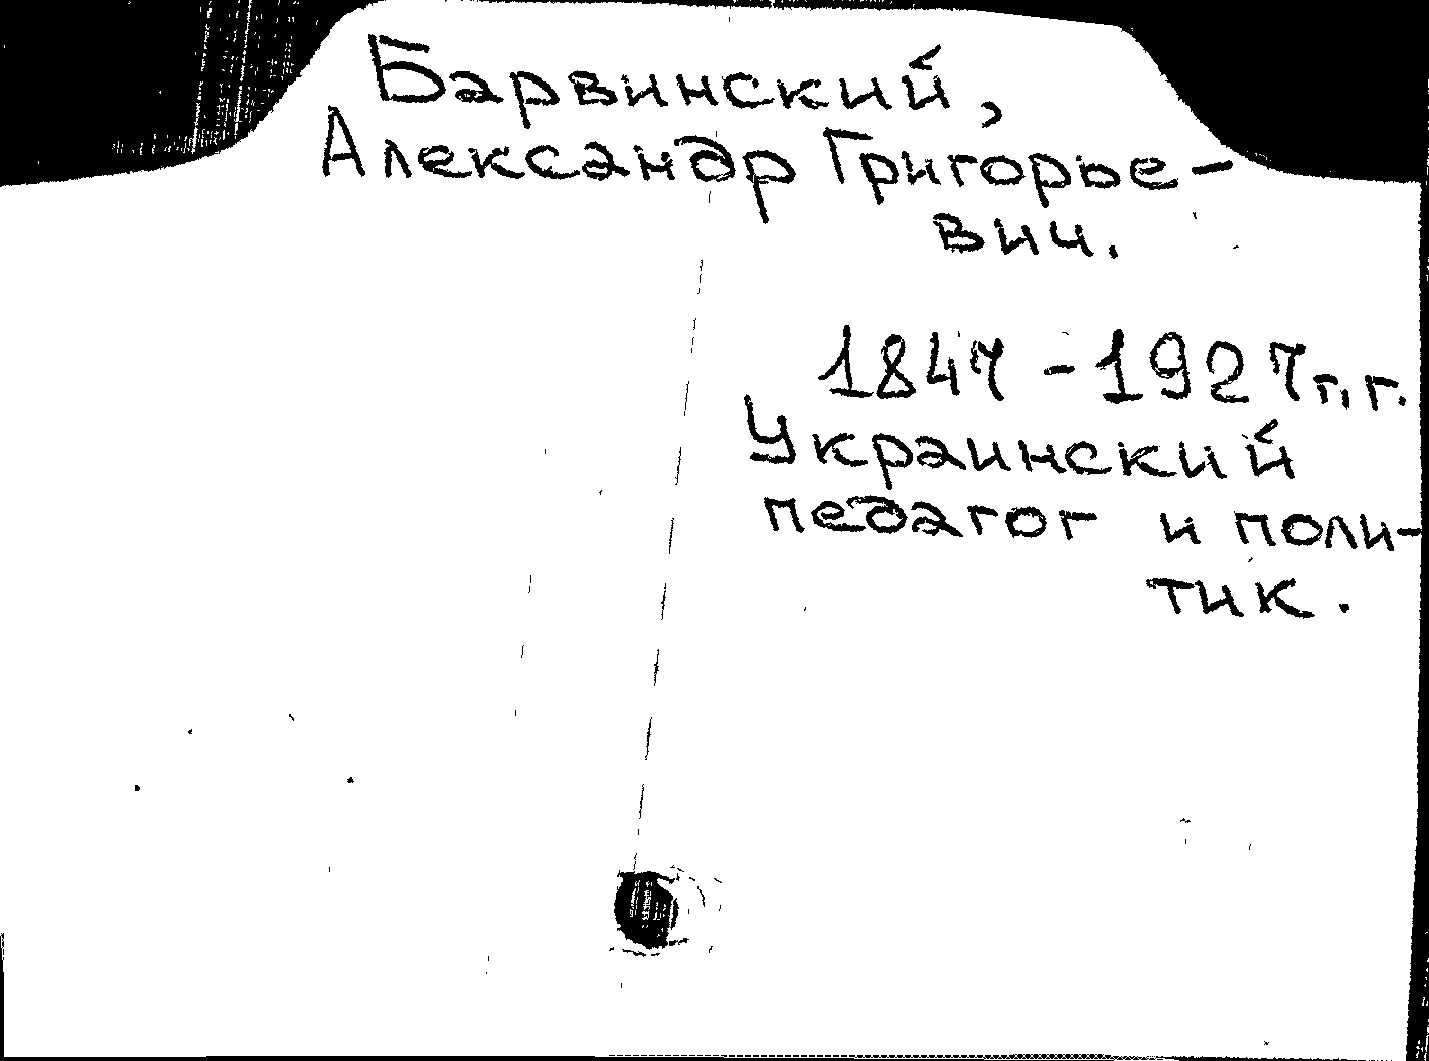 Барвинский,
Александр Григорье-
вич.
1847-1927г.г.
Украинский
педагог и поли-
тик.